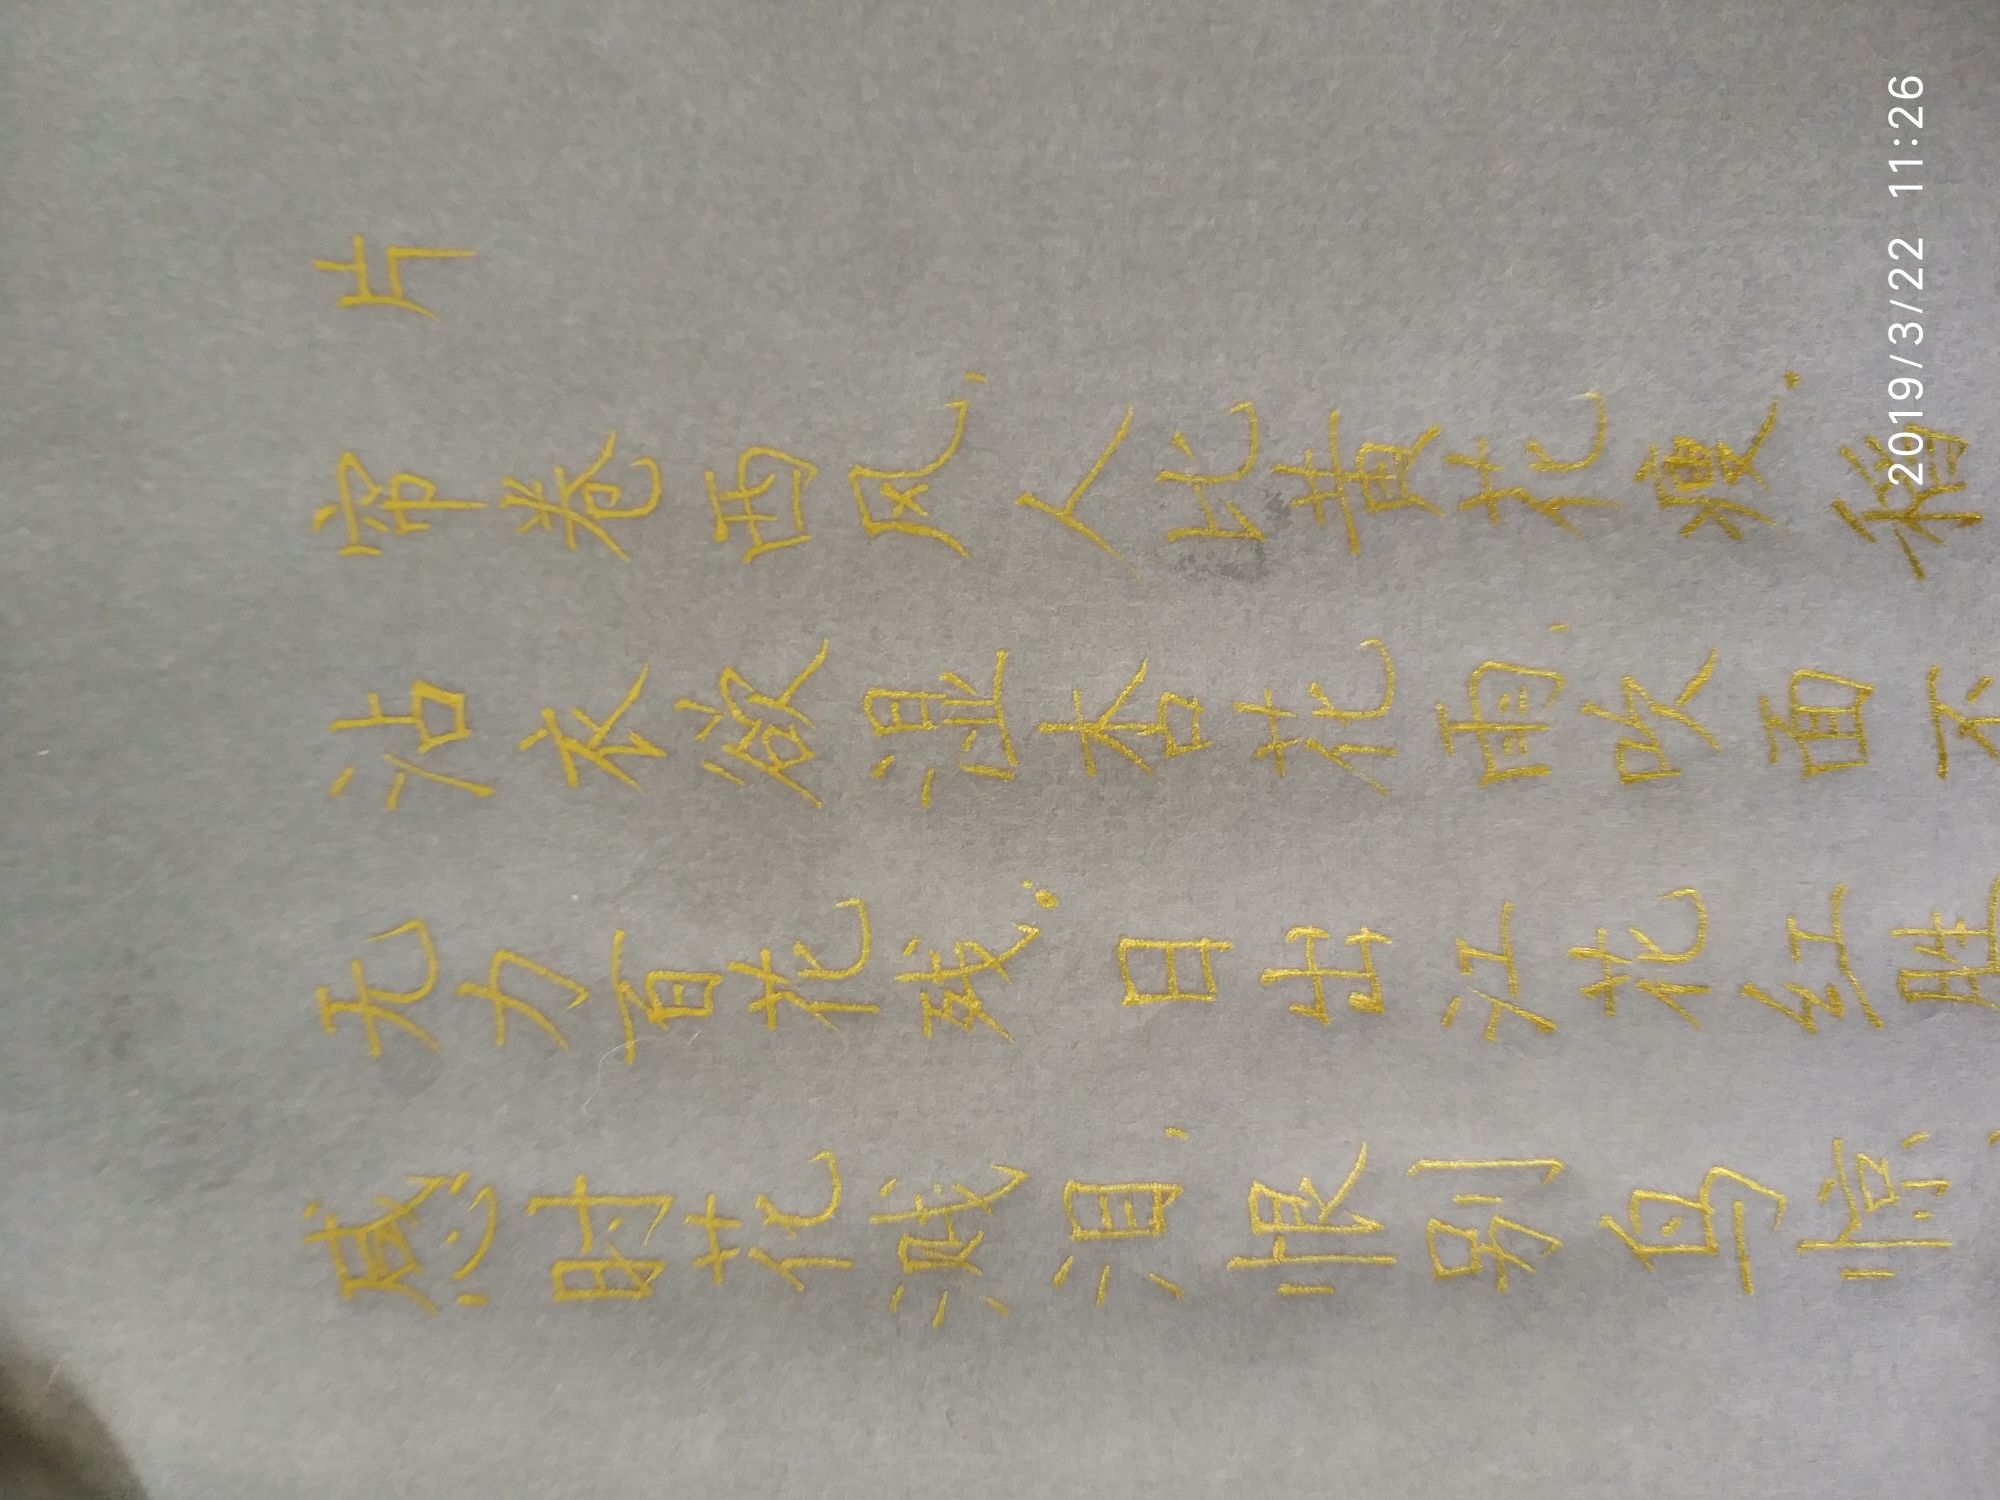 感时花溅泪,恨别鸟惊
无力百花残。日出江花红胜
沾衣欲湿杏花雨,吹面不
帘卷西风,人比黄花瘦.稻
片
2019/3/22 11:26